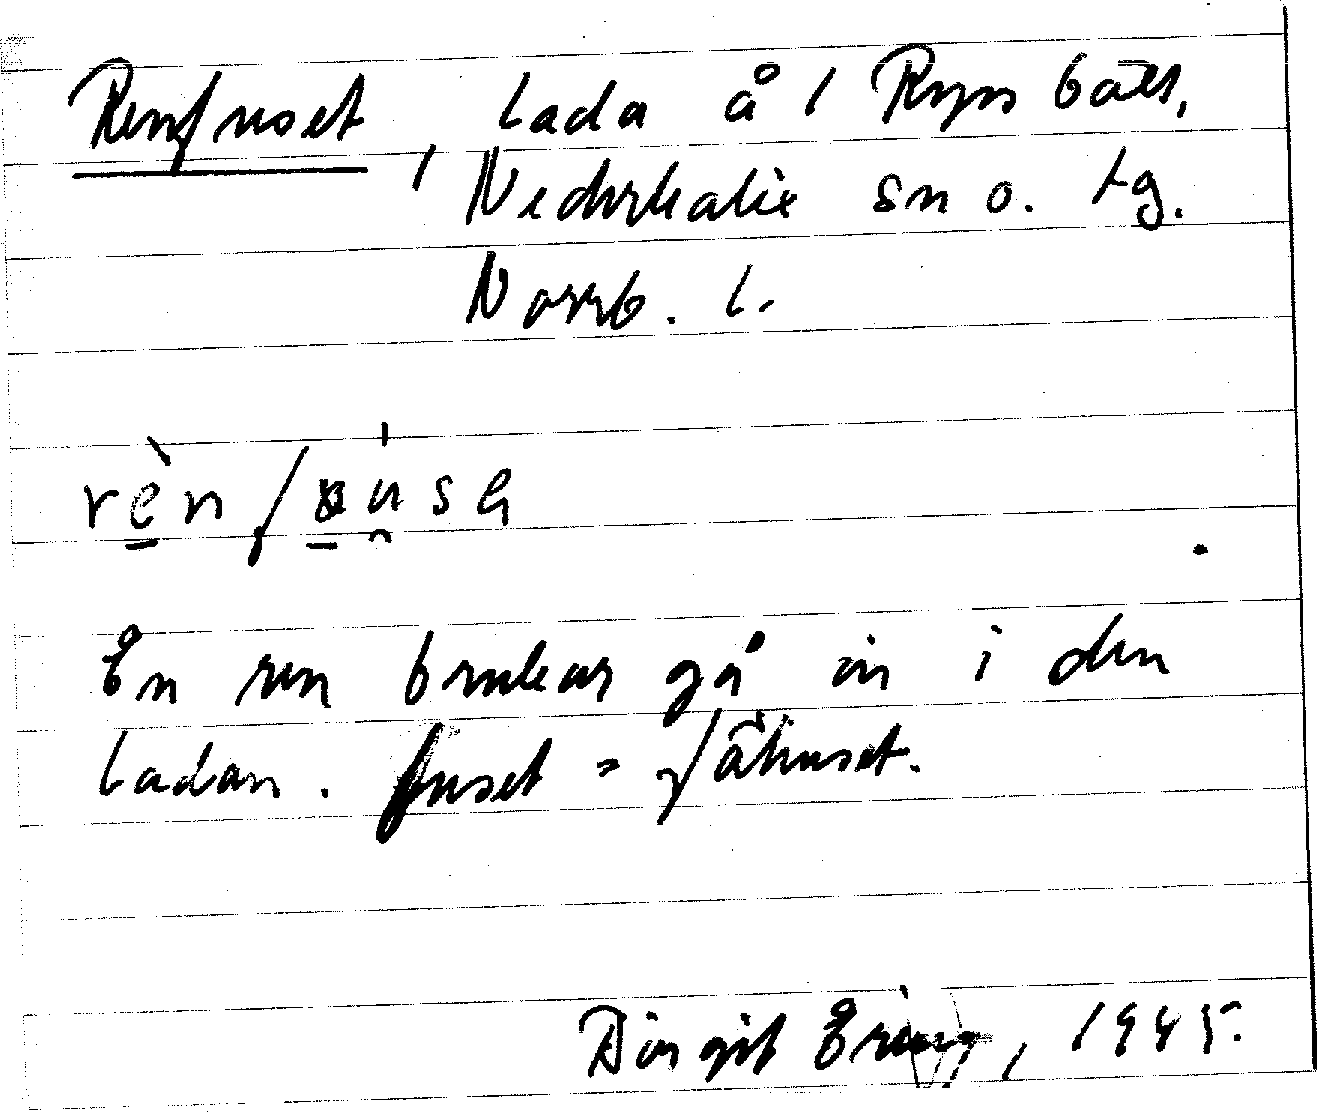 Renfuset, lada å 1 Ryss bäls,
Nederkalix sn o. tg.
Norrb. l.
En ren brukar gå in i den
ladan. fuset = fähuset.
Birgit Ering, 1945.